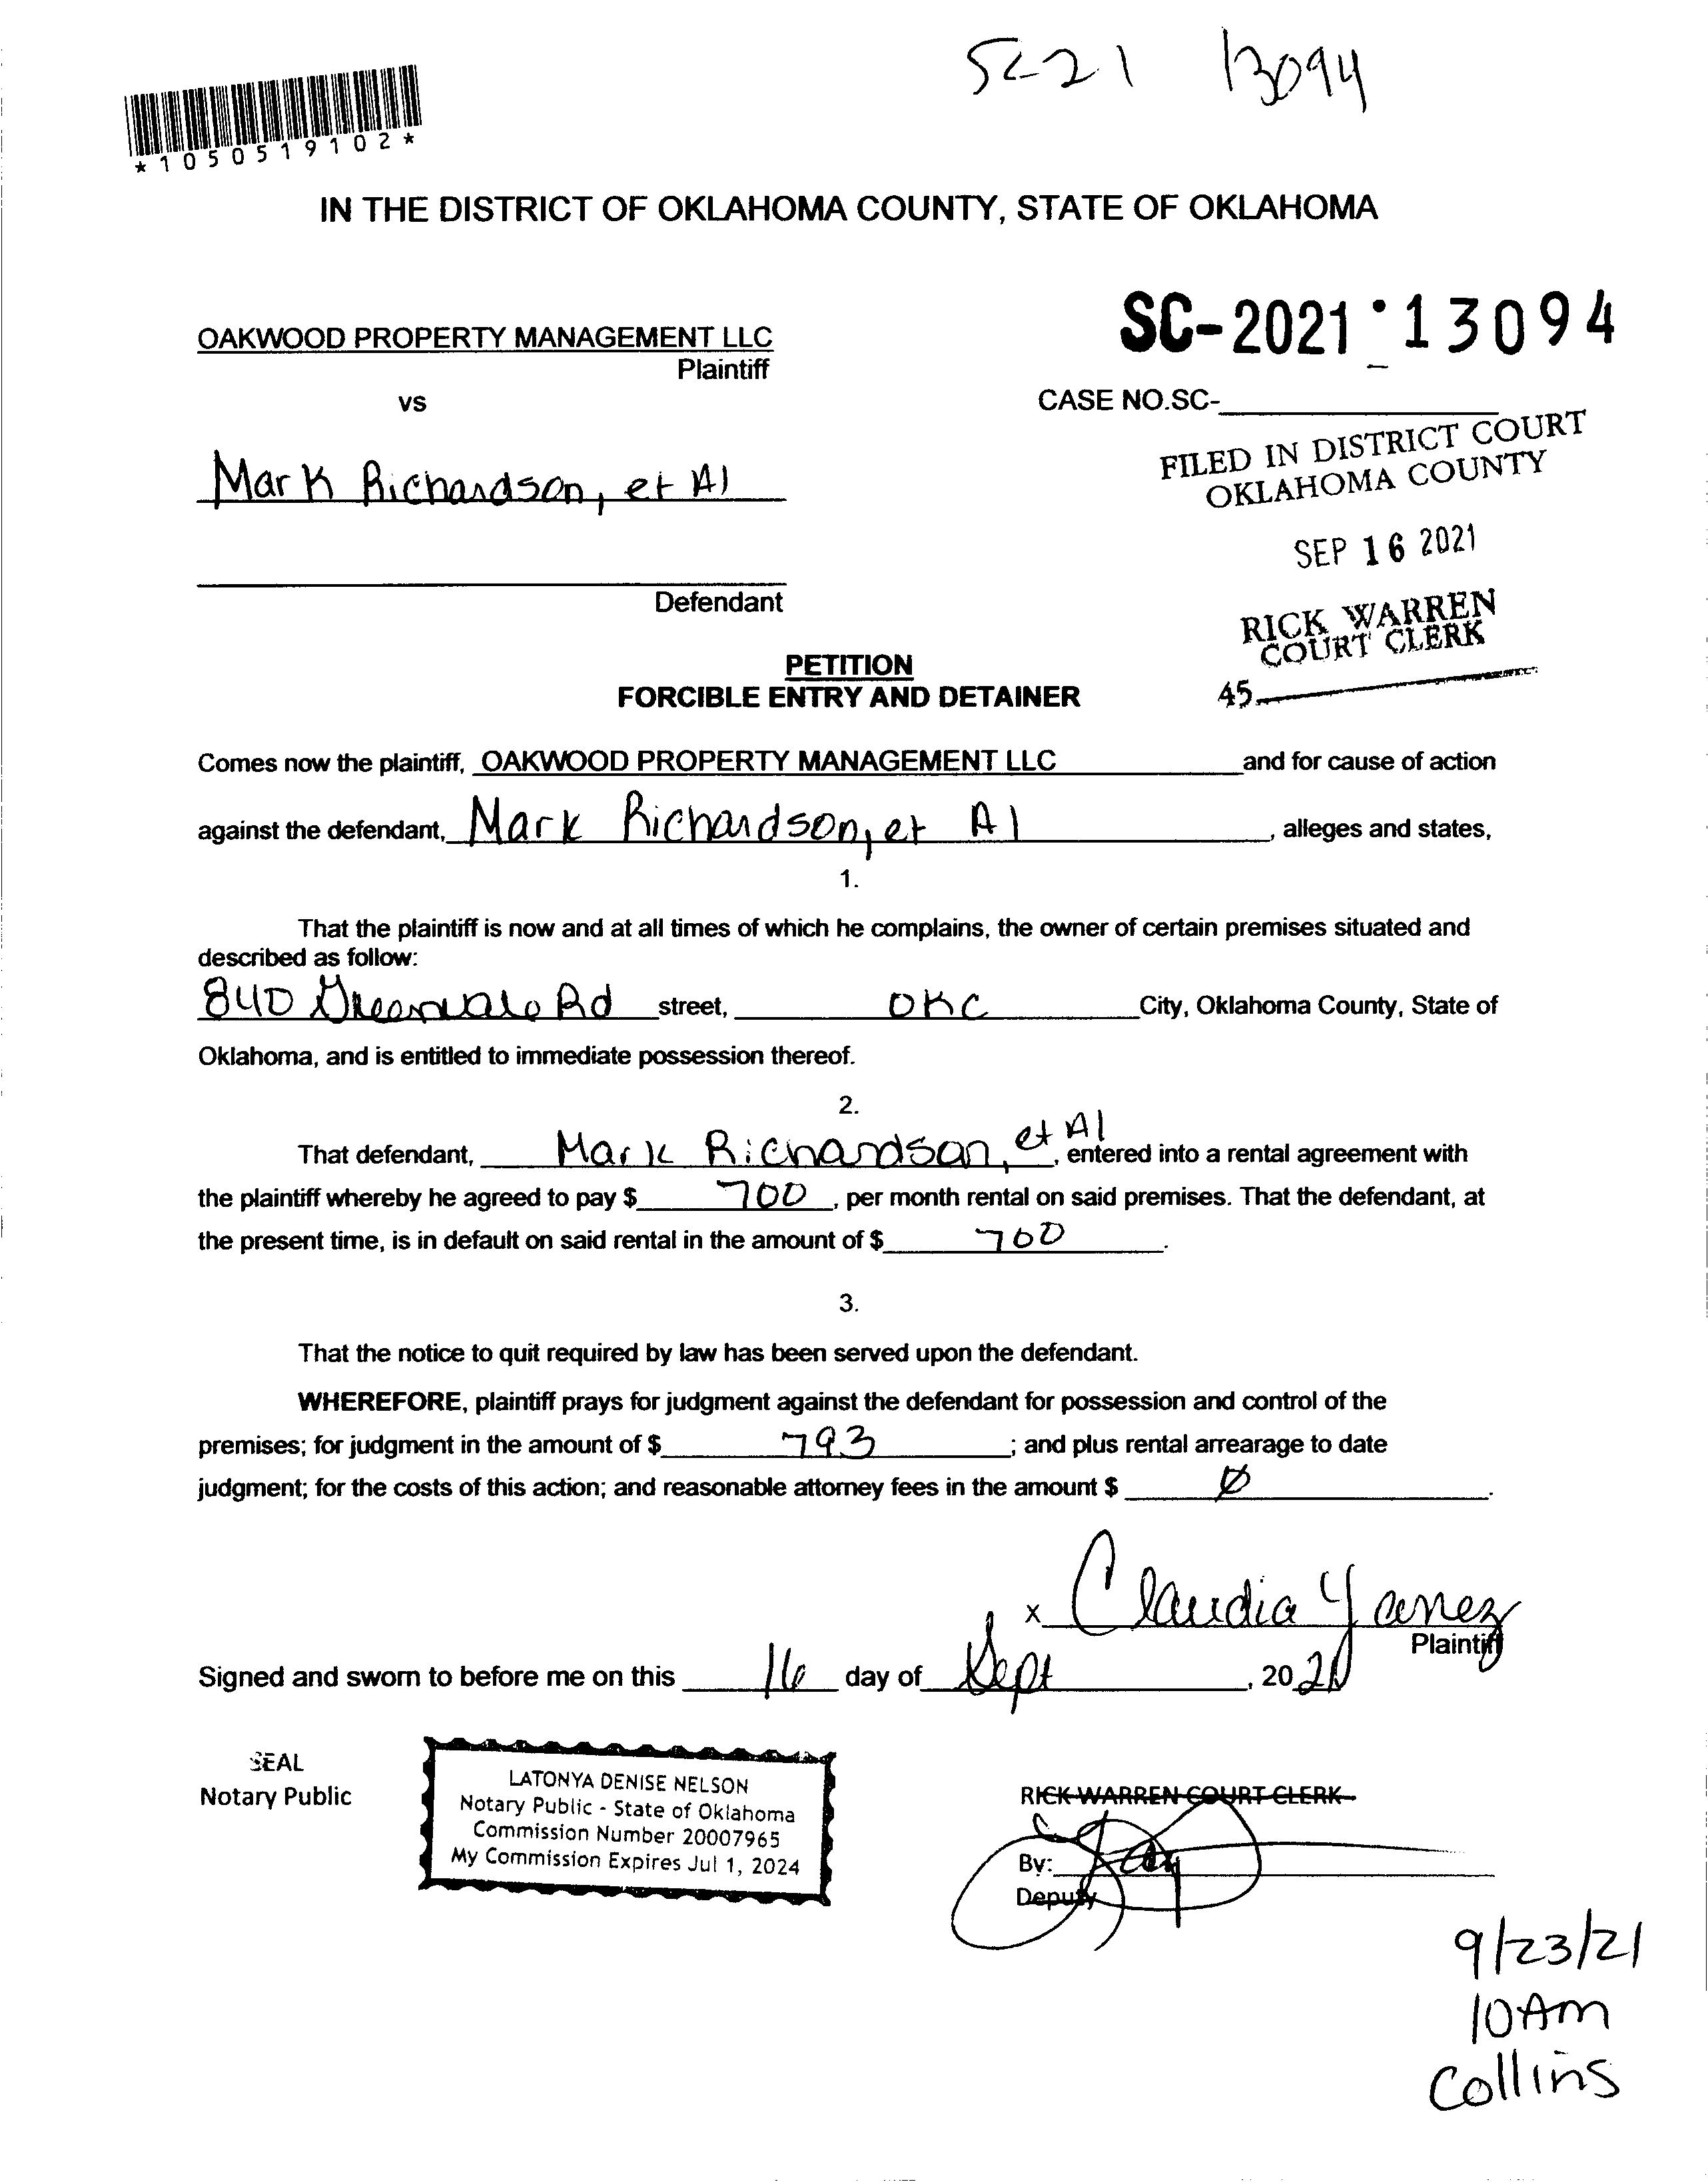 SC-21 13094
*1050519102*
IN THE DISTRICT OF OKLAHOMA COUNTY, STATE OF OKLAHOMA
OAKWOOD PROPERTY MANAGEMENT LLC
Plaintiff
SC-2021 13094
vs
CASE NO.SC-
FILED IN DISTRICT COURT
OKLAHOMA COUNTY
Mark Richardson, et Al
SEP 16 2021
Defendant
RICK WARREN
COURT CLERK
PETITION
FORCIBLE ENTRY AND DETAINER
45
Comes now the plaintiff, OAKWOOD PROPERTY MANAGEMENT LLC and for cause of action
against the defendant, Mark Richardson, et Al, alleges and states,
1.
That the plaintiff is now and at all times of which he complains, the owner of certain premises situated and
described as follow:
840 Rd street, OKC City, Oklahoma County, State of
Oklahoma, and is entitled to immediate possession thereof.
2.
That defendant, Mark Richardson, et Al, entered into a rental agreement with
the plaintiff whereby he agreed to pay $ 700, per month rental on said premises. That the defendant, at
the present time, is in default on said rental in the amount of $ 700.
3.
That the notice to quit required by law has been served upon the defendant.
WHEREFORE, plaintiff prays for judgment against the defendant for possession and control of the
premises; for judgment in the amount of $ 793; and plus rental arrearage to date
judgment; for the costs of this action; and reasonable attorney fees in the amount $ Ø.
x Claudia Yanez
Plaintiff
Signed and sworn to before me on this 16 day of Sept, 2021
SEAL
Notary Public
LATONYA DENISE NELSON
Notary Public - State of Oklahoma
Commission Number 20007965
My Commission Expires Jul 1, 2024
RICK WARREN COURT CLERK
By:
Deputy
9/23/21
10 Am
Collins